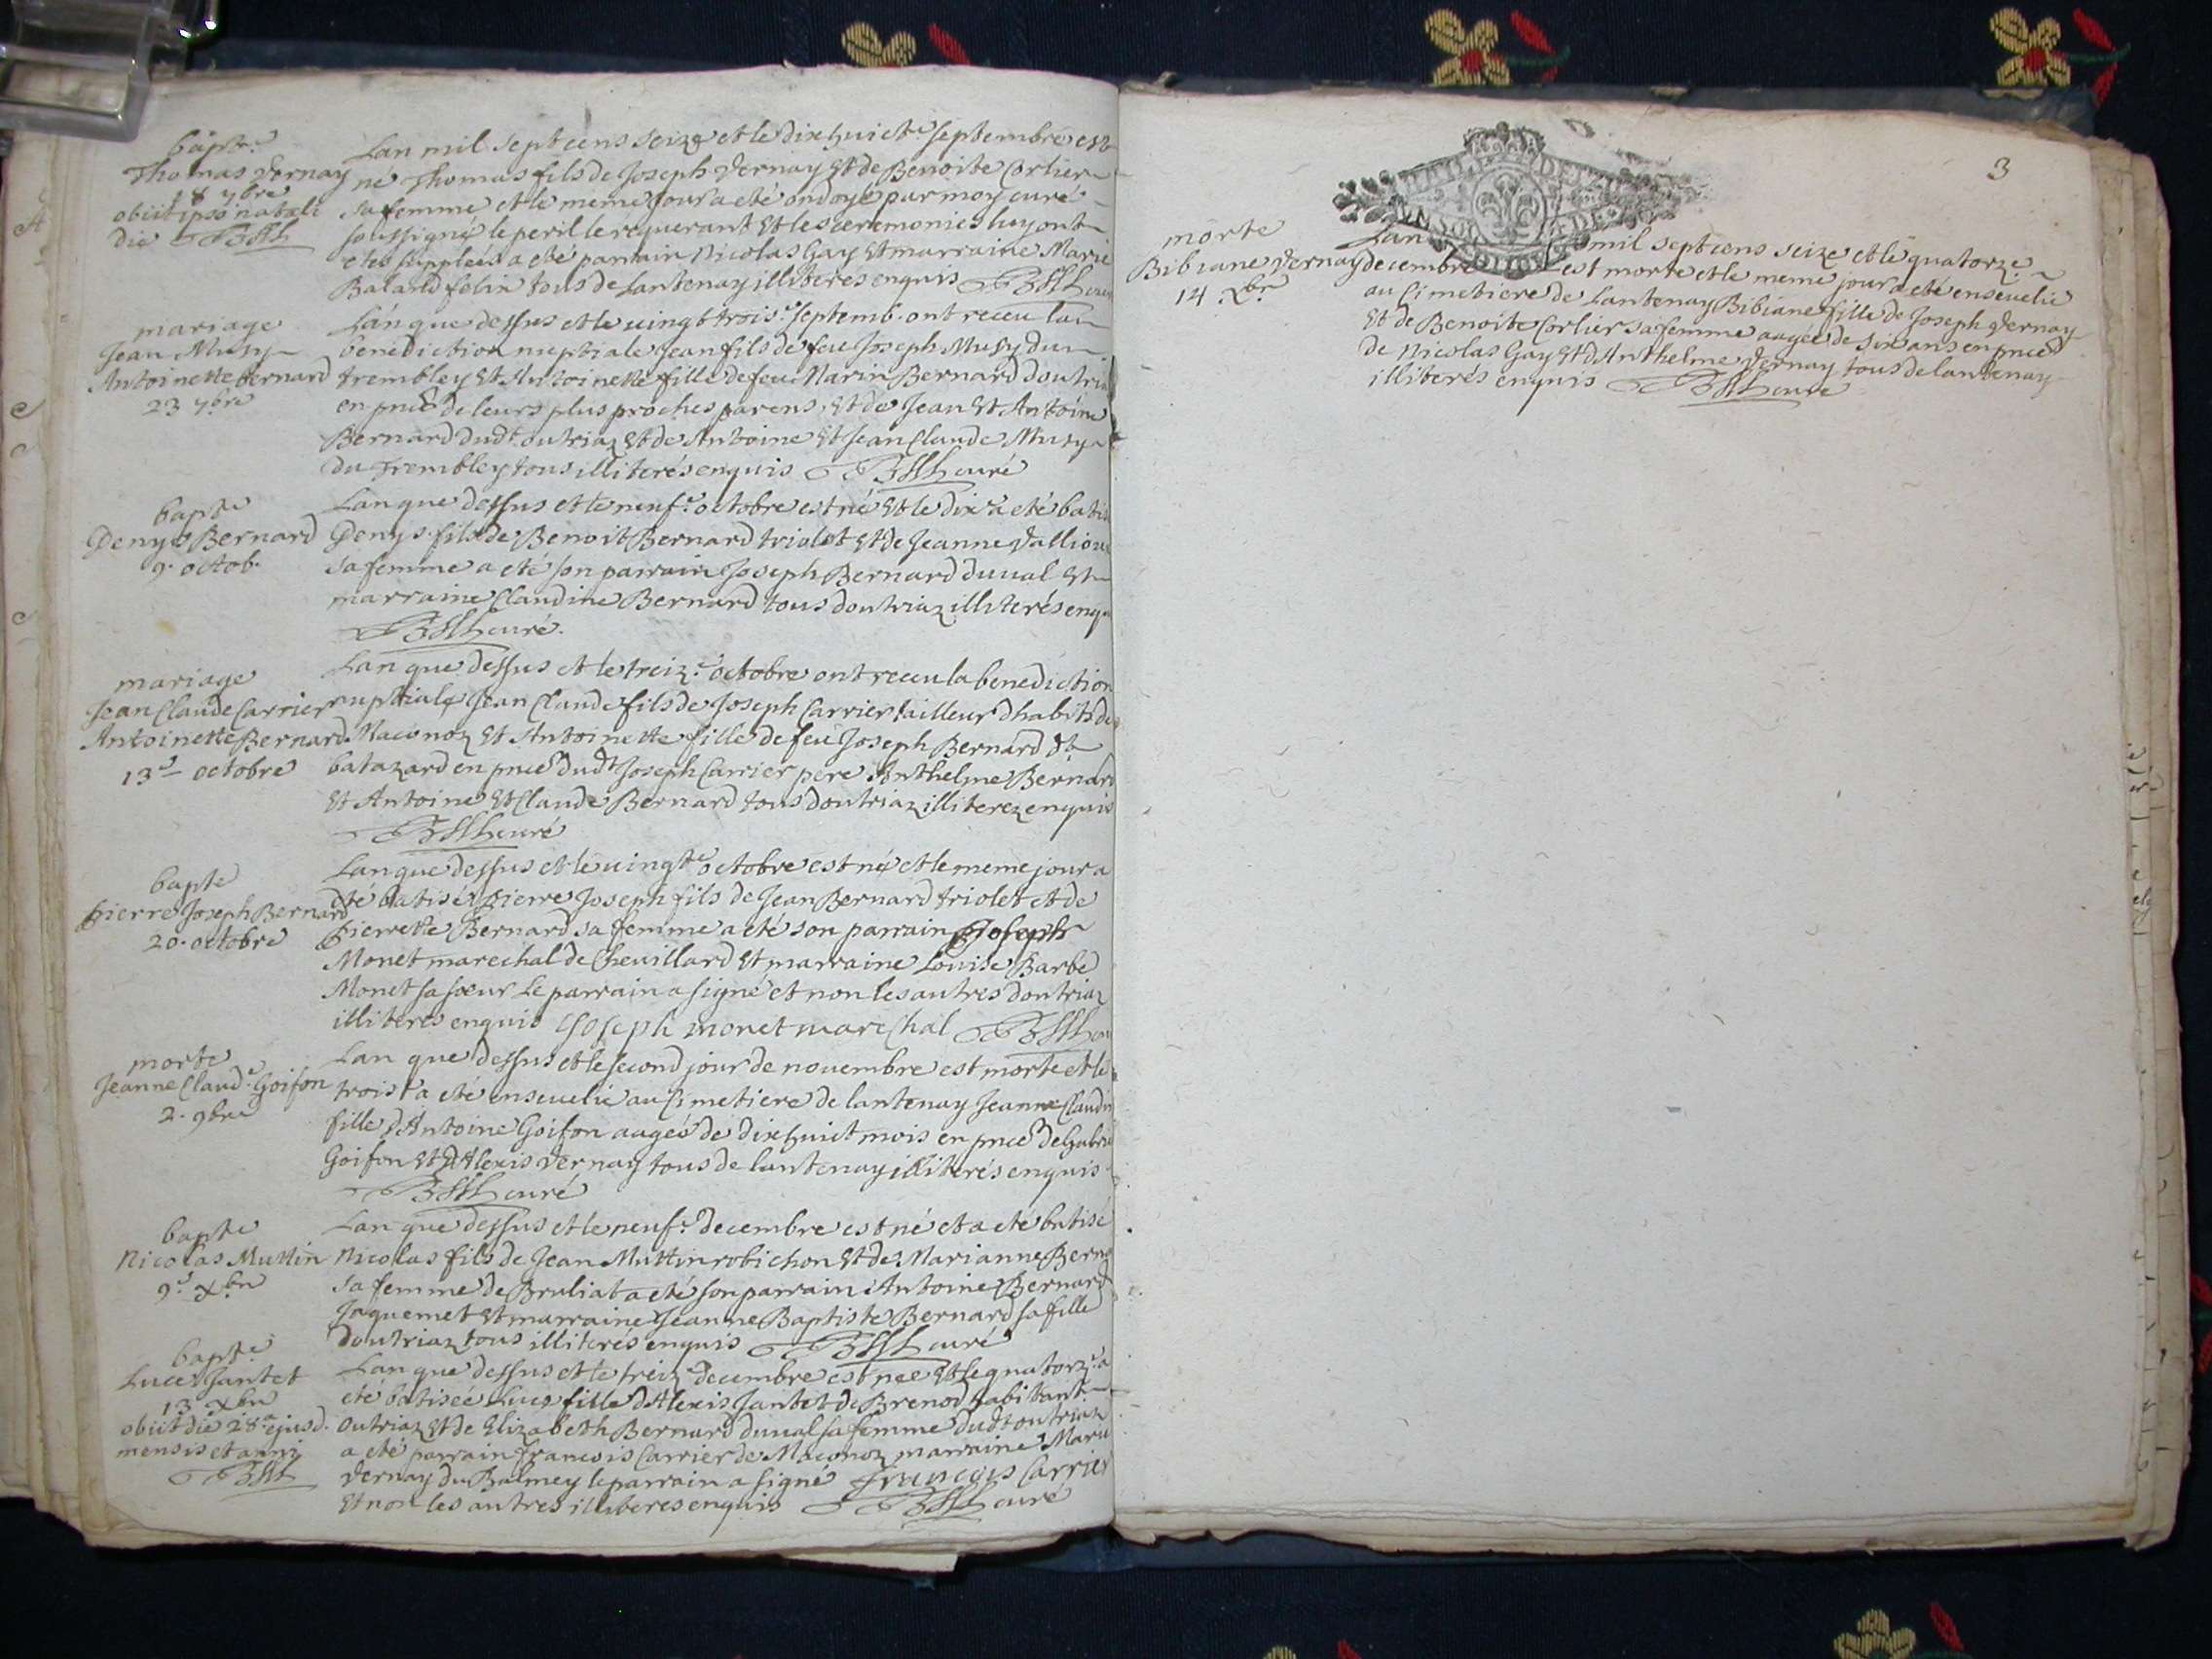 bapt.e
Thomas Vernay
18 7bre
obiit ipso natali
die
Lan mil sept cens seize et le dix huicte septembre est
né Thomas fils de Joseph Vernay Et de Benoite Corlier
sa femme et le meme jour a eté ondoyé par moy curé
soussigné le peril le requerant Et les ceremonies luy ont
etes suppleés a eté parrain Nicolas Gay Et marraine Marie
Baland felix tous de Lantenay illiterés enquis
mariage
Jean Musy
Antoinette Bernard
23 7bre
Lan que dessus et le vingt trois.e septemb. ont receu la
benediction nuptiale Jean fils de feu Joseph Musy du
trembley Et Antoinette fille de feu Marin Bernard doutriaz
en pnce de leurs plus proches parens, Et de Jean Et Antoine
Bernard dudt outriaz Et de Antoine Et Jean Claude Musy
du Trembley tous illiterés enquis curé
bapte
Denys Bernard
9. octob.
Lan que dessus et le neuf.e octobre est né Et le dix.e a eté batisé
Denys fils de Benoit Bernard triolet Et de Jeanne Vallion
sa femme a eté son parrain Joseph Bernard duval Et
marraine Claudine Bernard tous doutriaz illiterés enquis
curé.
mariage
Jean Claude Carrier
Antoinette Bernard
13e octobre
Lan que dessus et le treiz.e octobre ont receu la benediction
nuptiale Jean Claude fils de Joseph Carrier tailleur dhabits de
Maconoz Et Antoinette fille de feu Joseph Bernard dt
batazard en pnce dudt Joseph Carrier pere Anthelme Bernard
Et Antoine Et Claude Bernard tous doutriaz illiterez enquis
curé
bapte
pierre Joseph Bernard
20. octobre
Lan que dessus et le vingt.e octobre est né et le meme jour a
été batisé pierre Joseph fils de Jean Bernard triolet et de
pierrette Bernard sa femme a eté son parrain Joseph
Monet marechal de Chevillard Et marraine Louise Barbe
Monet sa soeur Le parrain a signé et non les autres doutriaz
illiteres enquis Joseph monet marechal
morte
Jeanne Claud.e Goifon
2. 9bre
Lan que dessus et le second jour de novembre est morte et le
trois.e a eté ensevelie au Cimetiere de lantenay Jeanne Claudine
fille d'Antoine Goifon aageé de dix huict mois en pnce de Gabriel
Goifon Et d'Alexis Vernay tous de lantenay illiterés enquis
curé
bapte
Nicolas Muttin
9e Xbre
Lan que dessus et le neuf.e decembre est né et a eté batisé
Nicolas fils de Jean Muttin robichon Et de Marianne Bernard
sa femme de Bruliat a eté son parrain Antoine Bernard
Jaquemet Et marraine Jeanne Baptiste Bernard sa fille
doutriaz tous illiterés enquis curé
bapte
Luce Jantet
13 Xbre
obiit die 28a ejusd.
mensis et anni
Lan que dessus et le treiz.e decembre est née Et le quatorz.e a
eté batisée Luce fille d'Alexis Jantet de Brenod habitant
outriaz Et de Elizabeth Bernard duval sa femme dudt outriaz
a eté parrain francois Carrier de Maconoz marraine Marie
Vernay du Balmey le parrain a signé François Carrier
Et non les autres illiteres enquis curé
3
morte
Bibiane Vernay
14 Xbre
Lan mil sept cens seize et le quatorze
decembre est morte et le meme jour a eté ensevelie
au Cimetiere de Lantenay Bibiane fille de Joseph Vernay
Et de Benoite Corlier sa femme aageé de six ans en pnce
de Nicolas Gay Et d'Anthelme Vernay tous de lantenay
illiterés enquis curé